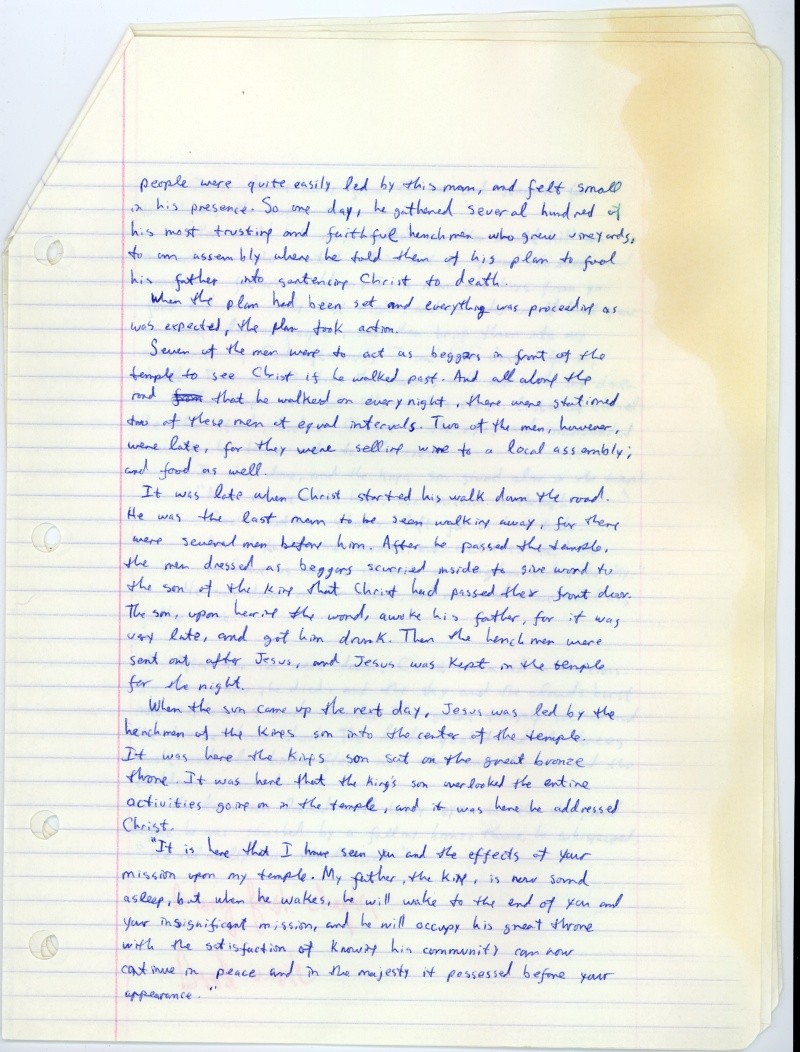 people were quite easily led by this man, and felt small
in his presence. So one day, he gathered several hundred of
his most trusting and faithful henchmen who grew vineyards,
to an assembly where he told them of his plan to fool
his father into sentencing Christ to death.
When the plan had been set and everything was proceeding as
was expected, the plan took action.
Seven of the men were to act as beggars in front of the
temple to see Christ if he walked past. And all along the
road that he walked on every night, there were stationed
two of these men at equal intervals. Two of the men, however,
were late, for they were selling wine to a local assembly;
and food as well.
It was late when Christ started his walk down the road.
He was the last man to be seen walking away, for there
were several men before him. After he passed the temple,
the men dressed as beggars scurried inside to give word to
the son of the king that Christ had passed their front door.
The son, upon hearing the word, awoke his father, for it was
very late, and got him drunk. Then the henchmen were
sent out after Jesus, and Jesus was kept in the temple
for the night.
When the sun came up the next day, Jesus was led by the
henchmen of the kings son into the center of the temple.
It was here the kings son sat on the great bronze
throne. It was here that the king's son overlooked the entire
activities going on in the temple, and it was here he addressed
Christ.
"It is here that I have seen you and the effects of your
mission upon my temple. My father, the king, is now sound
asleep, but when he wakes, he will wake to the end of you and
your insignificant mission, and he will occupy his great throne
with the satisfaction of knowing his community can now
continue in peace and in the majesty it possessed before your
appearance."